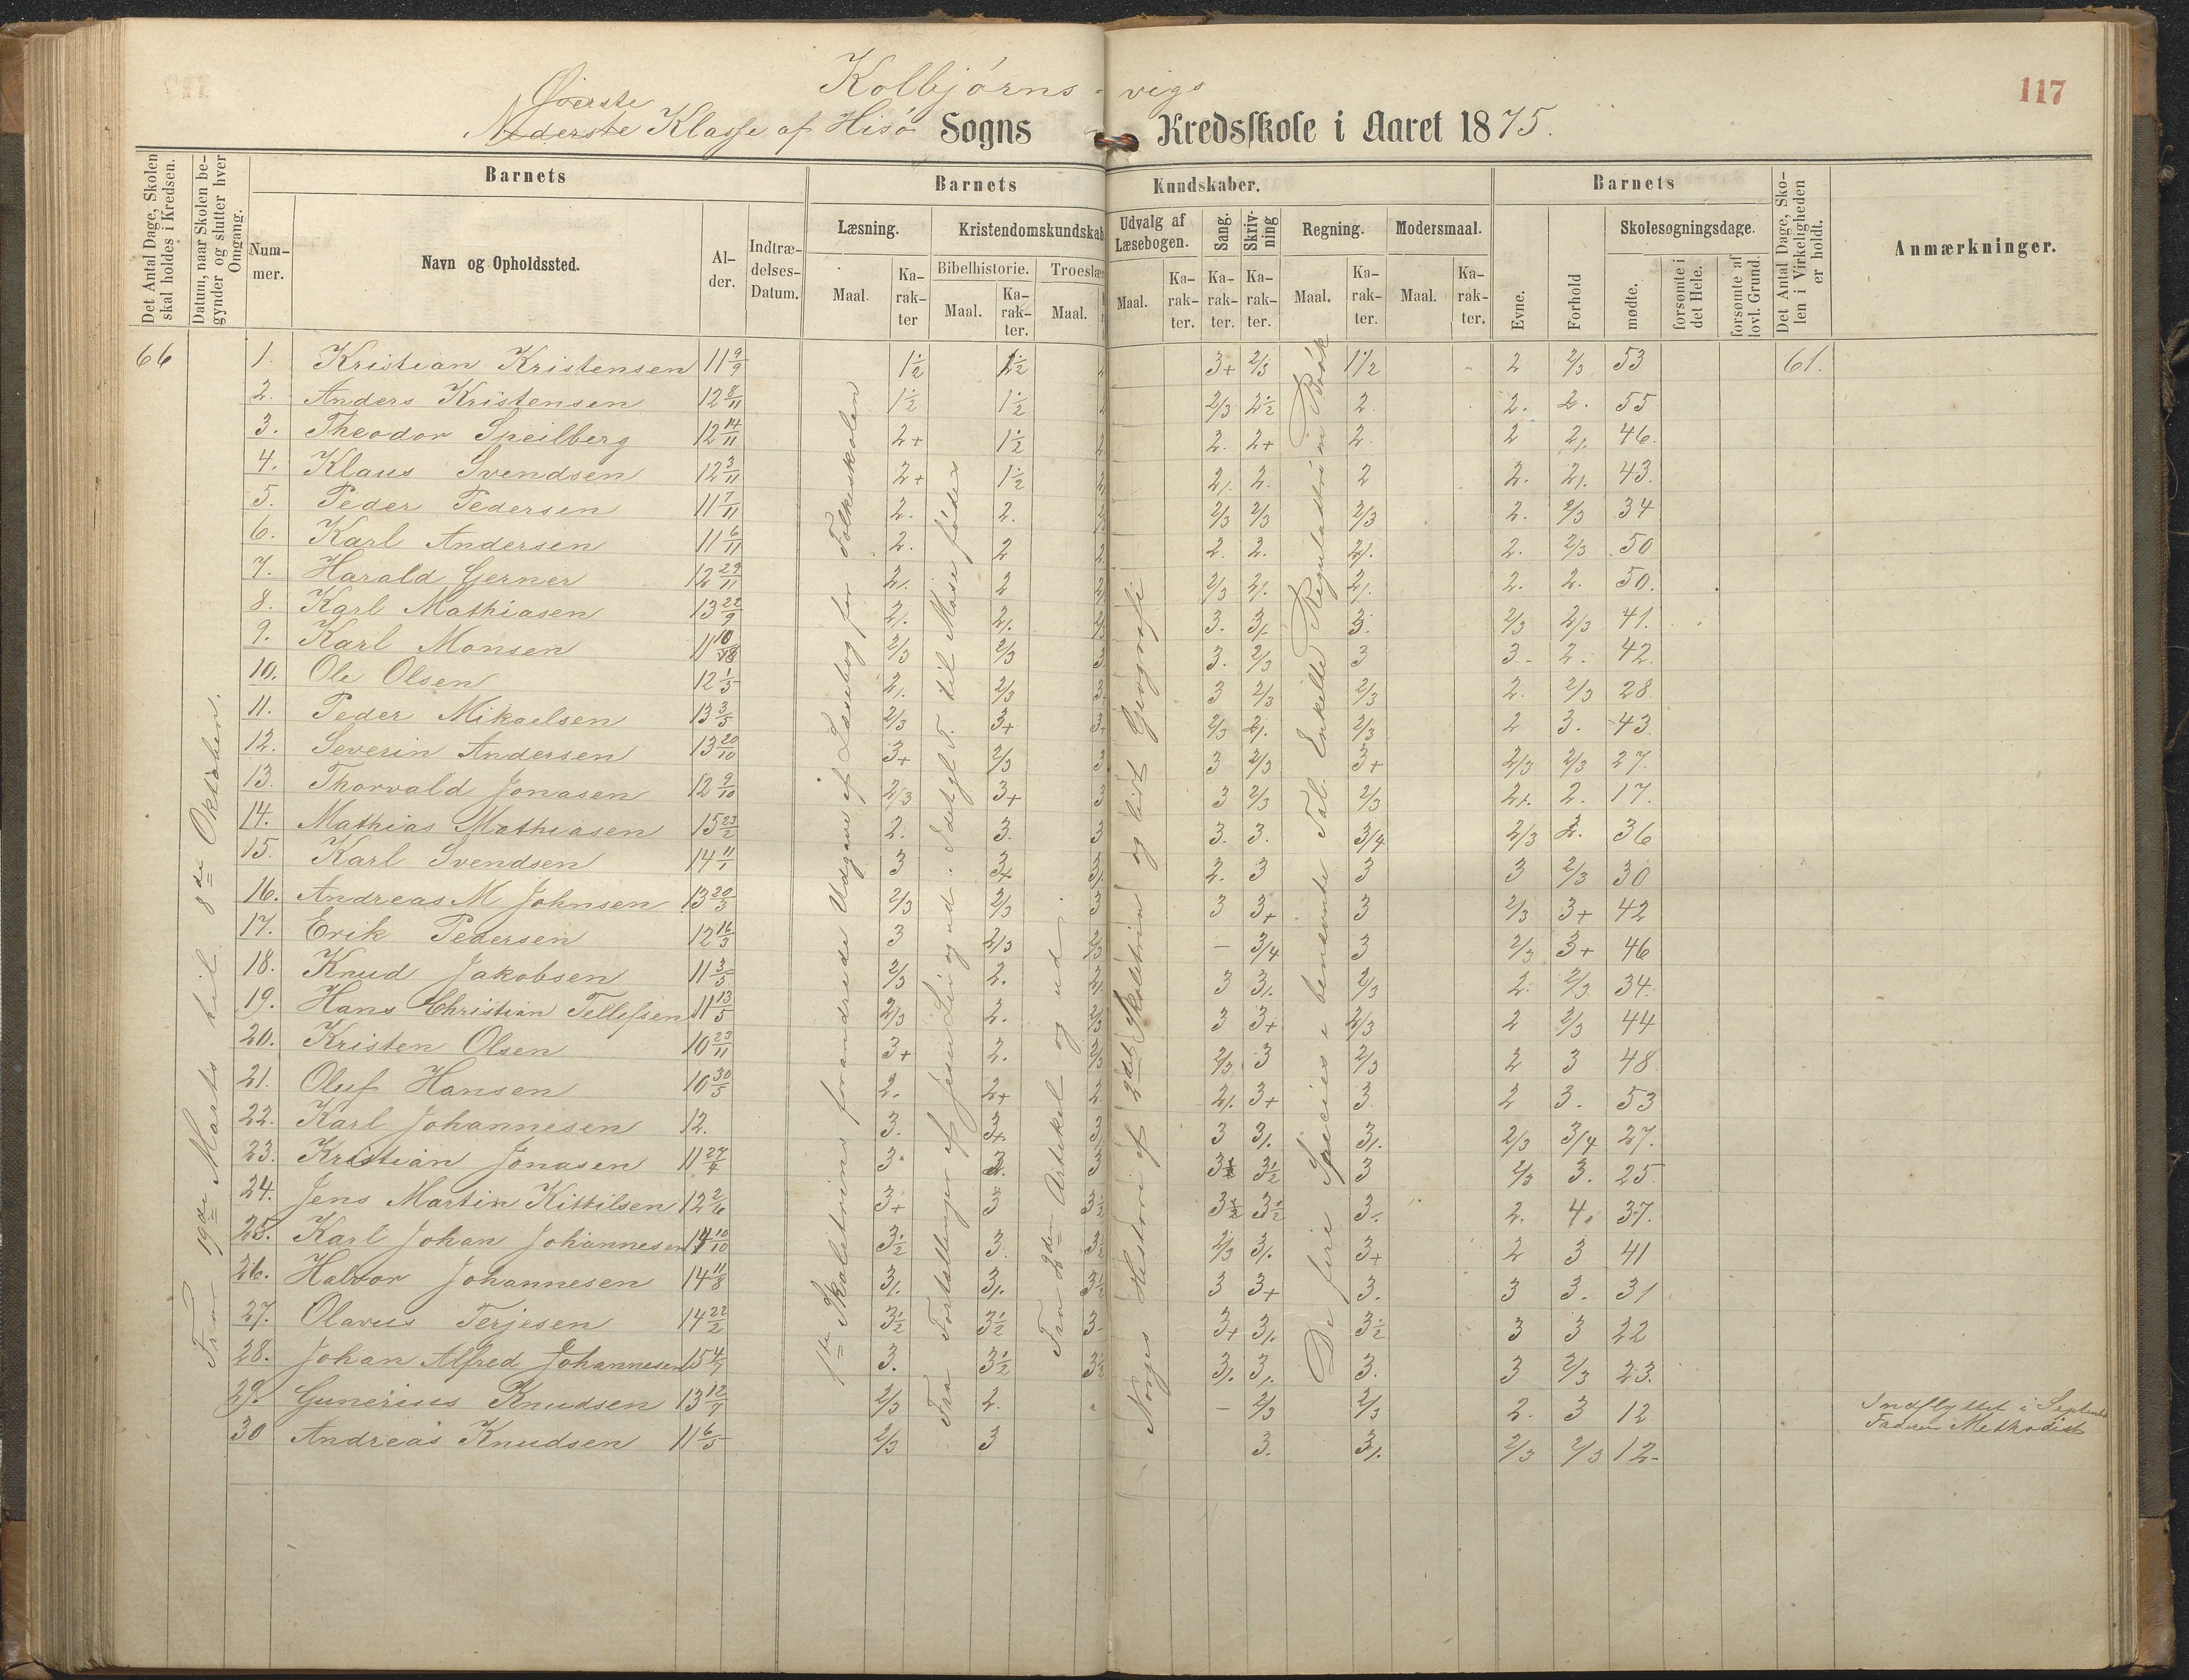 117
Kolbjörns-vigs
Øverste
Nederste Klasse af Hisø Sogns Kredsskole i Aaret 1875.
Det Antal Dage, Skolen skal holdes i Kredsen.
Datum, naar Skolen begynder og slutter hver Omgang.
Barnets
Nummer.
Navn og Opholdssted.
Alder.
Indtrædelses-Datum.
Barnets Kundskaber.
Læsning.
Maal.
Karakter
Kristendomskundskab
Bibelhistorie.
Maal.
Karakter.
Troeslær
Maal.
Udvalg af Læsebogen.
Maal.
Karakter.
Sang.
Karakter.
Skrivning
Karakter.
Regning.
Maal.
Karakter.
Modersmaal.
Maal.
Karakter.
Barnets
Evne.
Forhold
Skolesøgningsdage.
mødte.
forsømte i det Hele.
forsømte af lovl. Grund.
Det Antal Dage, Skolen i Virkeligheden er holdt.
Anmærkninger.
Fra 19de Marts til 8de Oktober.
1ste Skoletrins forandrede Udgave af Læsebog for Folkeskolen
Fra Fortællinger af Jesu Liv og ud. Ideligt T. til Mose føder
Fra 2den Artikel og ud.
Norges Historie af 2det Skoletrin og lidt Geografi
De fire Species i benævnte Tal. Enkelte Reguladetri m Brøk
66 1. Kristian Kristensen 11 9/9 1½ 1½ 3+ 2/3 1½ 2 2/3 53 61.
2. Anders Kristensen 12 8/11 1½ 1½ 2/3 2½ 2. 2. 2. 55
3. Theodor Speilberg 12 14/11 2+ 1½ 2. 2+ 2. 2 2/. 46.
4. Klaus Svendsen 12 3/11 2+ 1½ 2/. 2. 2 2. 2/. 43.
5. Peder Pedersen 11 7/11 2. 2. 2/3 2/3 2/3 2. 2/3 34
6. Karl Andersen 11 6/11 2. 2 2. 2. 2/. 2. 2/3 50
7. Harald Gerner 12 29/11 2/. 2 2/3 2/. 2/. 2. 2. 50.
8. Karl Mathiasen 13 22/9 2/. 2/. 3. 3/. 3. 2/3 2/3 41.
9. Karl Monsen 11 2/3 2/3 3. 2/3 3 3. 2. 42.
10. Ole Olsen 12 1/5 2/. 2/3 3 2/3 2/3 2. 2/3 28.
11. Peder Mikaelsen 13 3/5 2/3 3+ 2/3 2/. 2/3 2 3. 43.
12. Severin Andersen 13 20/10 3+ 2/3 3 2/3 3+ 2/3 2/3 27.
13. Thorvald Jonasen 12 9/10 2/3 3+ 3 2/3 2/3 2/. 2. 17.
14. Mathias Mathiasen 15 23/2 2. 3. 3. 3. 3/4 2/3 2. 36
15. Karl Svendsen 14 11/1 3 3+ 2. 3 3 3 2/3 30
16. Andreas M Johnsen 13 20/3 2/3 2/3 3 3+ 3 2/3 3+ 42
17. Erik Pedersen 12 16/3 3 2/3 – 3/4 3 2/3 3+ 46
18. Knud Jakobsen 11 3/5 2/3 2. 3 3/. 2/3 2. 2/3 34.
19. Hans Christian Tellefsen 11 13/5 2/3 2. 3 3+ 2/3 2 2/3 44
20. Kristen Olsen 10 23/11 3+ 2. 2/3 3 2/3 2 3 48.
21. Oluf Hansen 10 30/5 2. 2+ 2/. 3+ 3 2 3. 53
22. Karl Johannesen 12. 3. 3+ 3 3/. 3/. 2/3 3/4 27.
23. Kristian Jonasen 11 27/4 3. 3. 3½ 3½ 3 2/3 3. 25.
24. Jens Martin Kittilsen 12 2/6 3+ 3 3½ 3½ 3/. 2. 4. 37.
25. Karl Johan Johannesen 14 10/10 3½ 3. 2/3 3/. 3+ 2 3 41
26. Halvor Johannesen 14 11/8 3/. 3/. 3 3+ 3. 3 3. 31
27. Olavus Terjesen 14 22/2 3½ 3½ 3+ 3/. 3½ 3 3 22
28. Johan Alfred Johannesen 15 4/7 3. 3½ 3/. 3/. 3. 3 2/3 23.
29. Gunerius Knudsen 13 12/7 2/3 2. – 2/3 2/3 2. 3 12 Indflyttet i Septemb
30 Andreas Knudsen 11 6/5 2/3 3 3. 3/. 2/3 2/3 12. Faderen Methodist